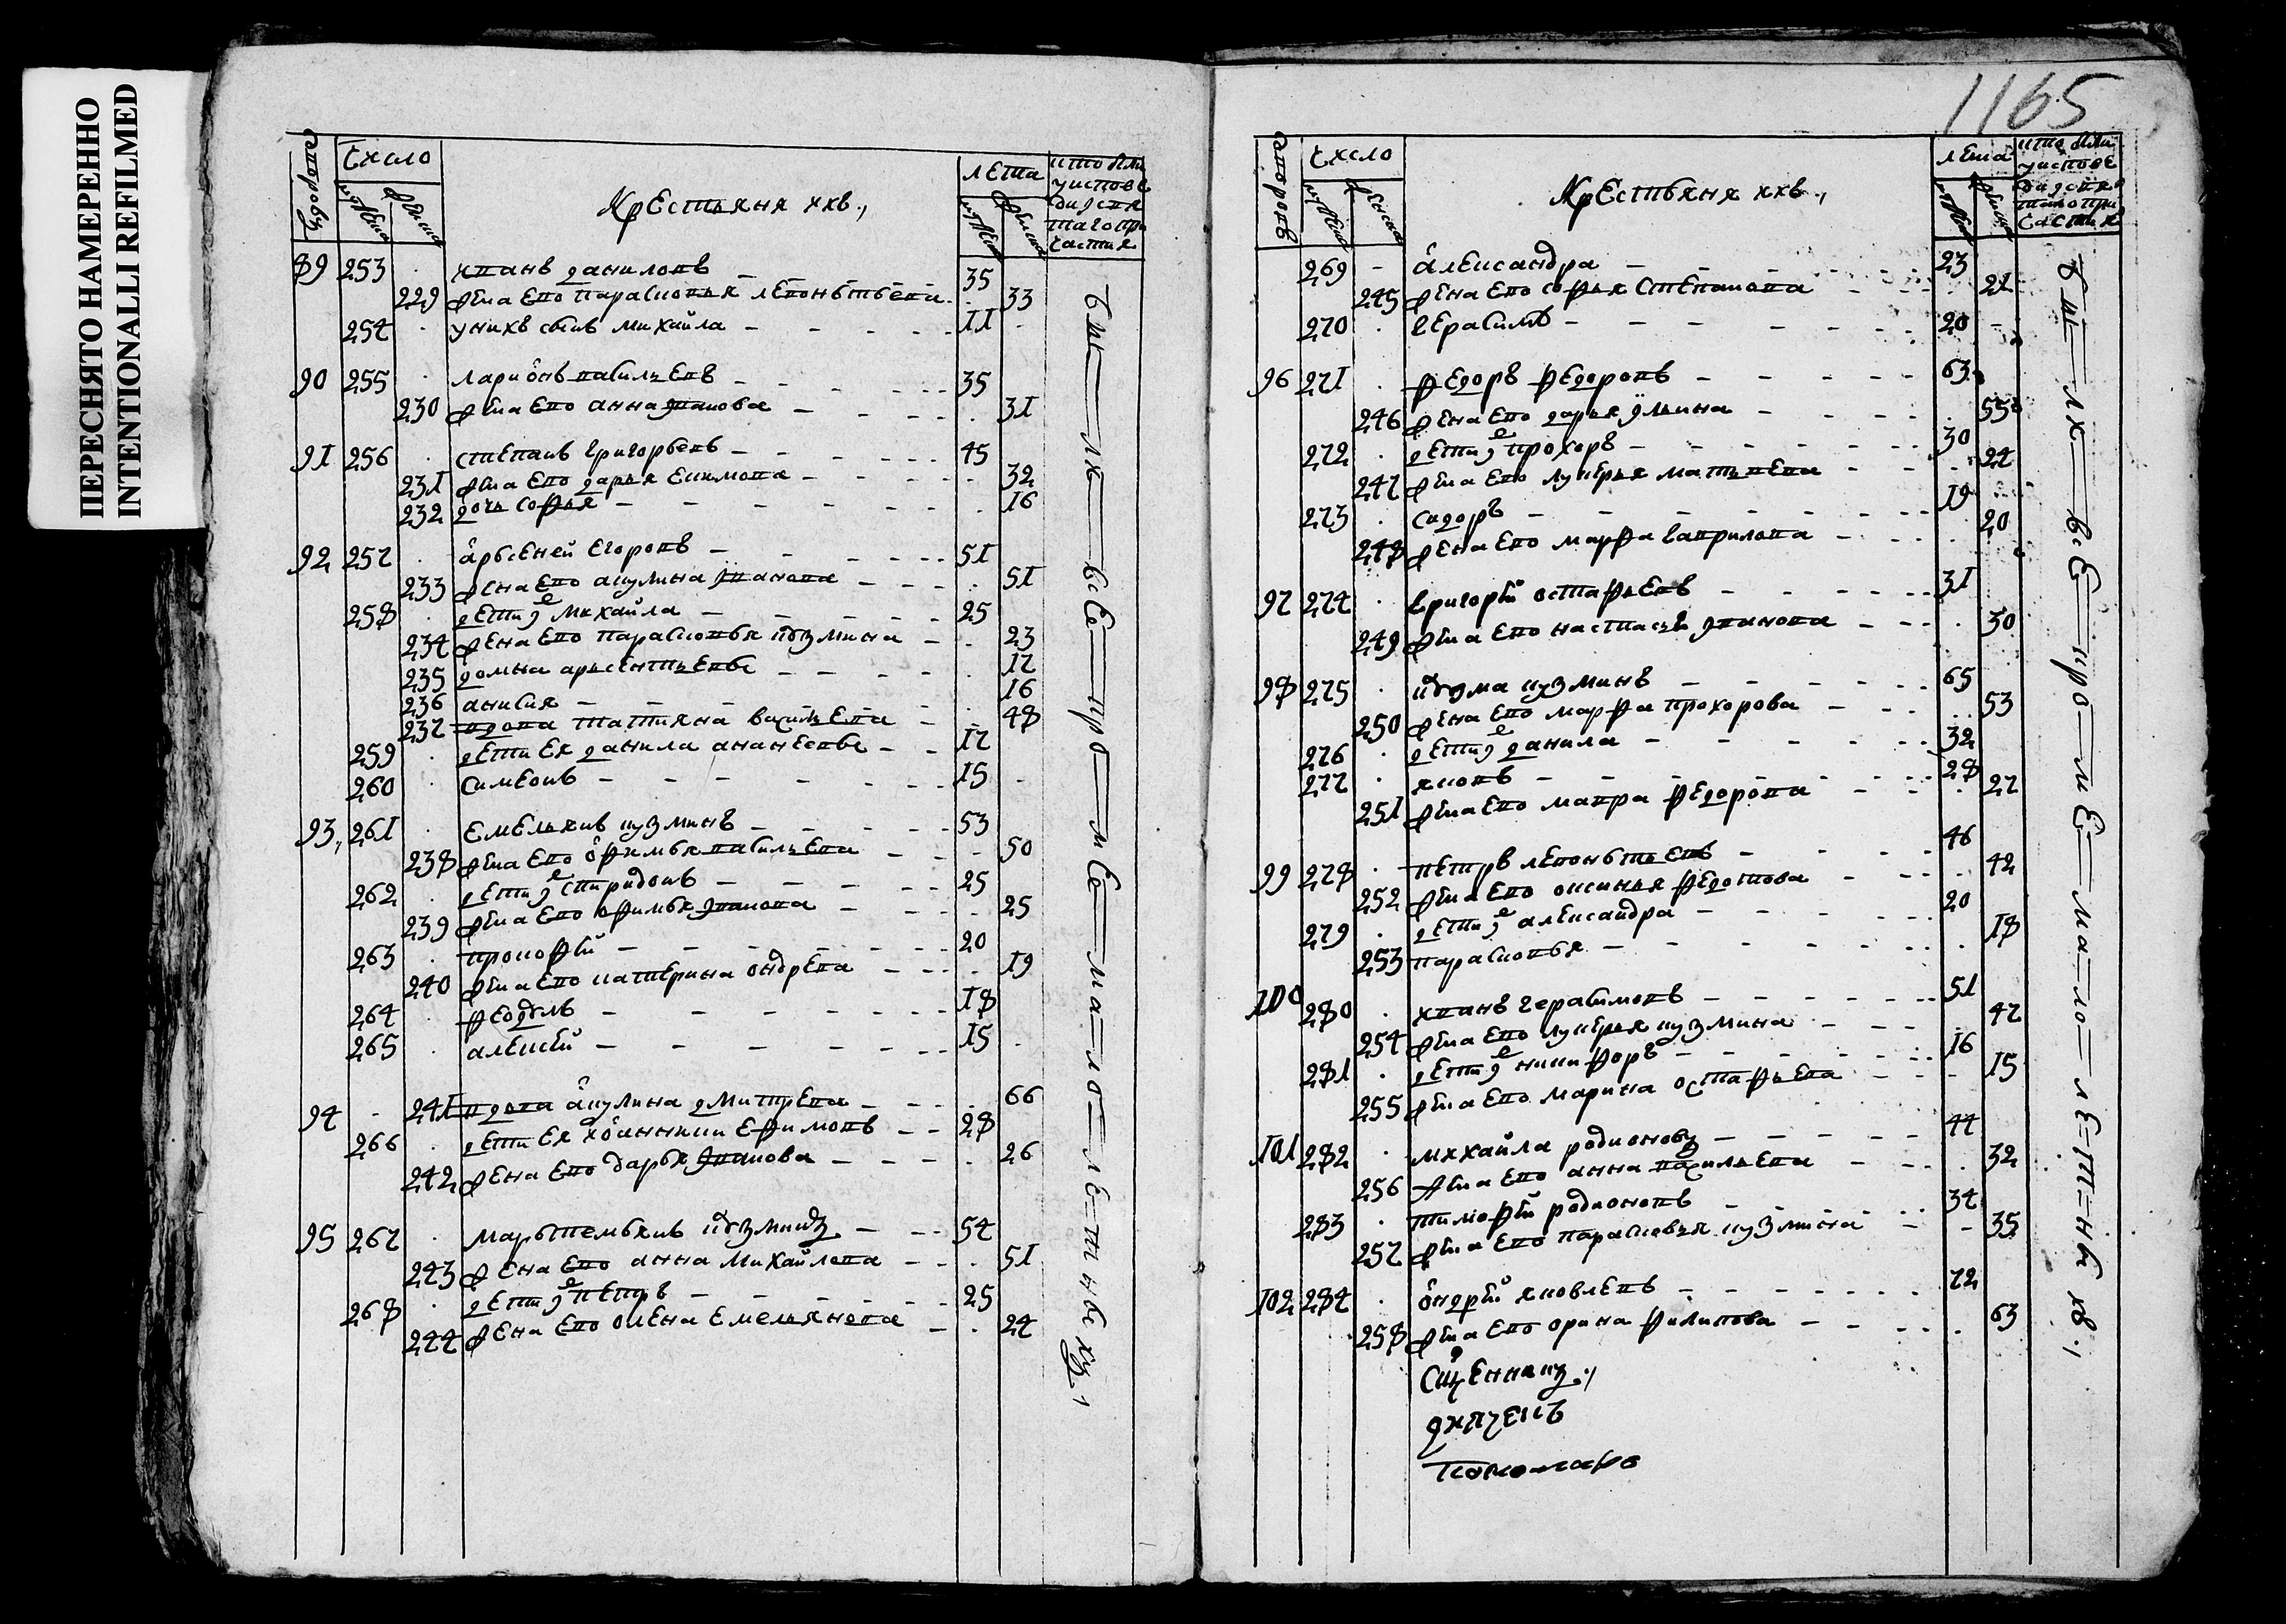 ПЕРЕСНЯТО НАМЕРЕННО
INTENTIONALLI REFILMED
дворовъ
Число
мужеска
женска
Крестьяня ихъ
лета
мужеска
женска
кто были
у испове
ди и свя
таго при
частия
89 253 иванъ даниловъ 35
229 жена ево парасковья леоньтьева 33
254 у нихъ сынъ михайла 11
90 255 ларионъ васильевъ 35
230 жена ево анна иванова 31
91 256 степанъ григорьевъ 45
231 жена ево дарья екимова 32
232 дочь софья 16
92 257 арьсеней егоровъ 51
233 жена ево акулина иванова 51
258 дети е михайла 25
234 жена ево парасковья кузмина 23
235 домна арьсентьевы 17
236 анисия 16
237 вдова татияна василева 48
259 дети ея данила ананьевы 17
260 симеонъ 15
93 261 емельянъ кузминъ 53
238 жена ево офимья васильева 50
262 дети е спиридонъ 25
239 жена ево офимья иванова 25
263 прокофей 20
240 жена ево катерина ондрева 19
264 федулъ 18
265 алексей 15
94 241 вдова акулина дмитрева 66
266 дети ея ефимовъ 28
242 жена ево дарья иванова 26
95 267 марьтемьянъ кузминъ 54
243 жена ево анна михайлова 51
268 дети е петръ 25
244 жена ево олена емельянова 24
были все кроме малолетныхъ
1165
дворовъ
Число
мужеска
женска
Крестьяня ихъ
лета
мужеска
женска
кто были
у испове
ди и свя
таго при
частия
269 александра 23
245 жена ево софья степанова 21
270 герасимъ 20
96 271 федоръ федоровъ 63
246 жена ево дарья ильина 55
272 дети е прохоръ 30
247 жена ево лукерья матвева 24
273 сидоръ 19
248 жена ево марфа гаврилова 20
97 274 григорей остафьевъ 31
249 жена ево настасья иванова 30
98 275 кузма кузминъ 65
250 жена ево марфа прохорова 53
276 дети е данила 32
277 яковъ 28
251 жена ево мавра федорова 27
99 278 петръ леоньтьевъ 46
252 жена ево оксинья федотова 42
279 дети е александра 20
253 парасковья 18
100 280 иванъ герасимовъ 51
254 жена ево лукерья кузмина 47
281 дети е никифоръ 16
255 жена ево марина остафьева 15
101 282 михайла родионовъ 44
256 жена ево анна васильева 32
283 тимофей родионовъ 34
257 жена ево парасковья кузмина 35
102 284 ондрей яковлевъ 72
258 жена ево орина филипова 63
были все кроме малолетныхъ
Сщенникъ
диячекъ
Пономарь